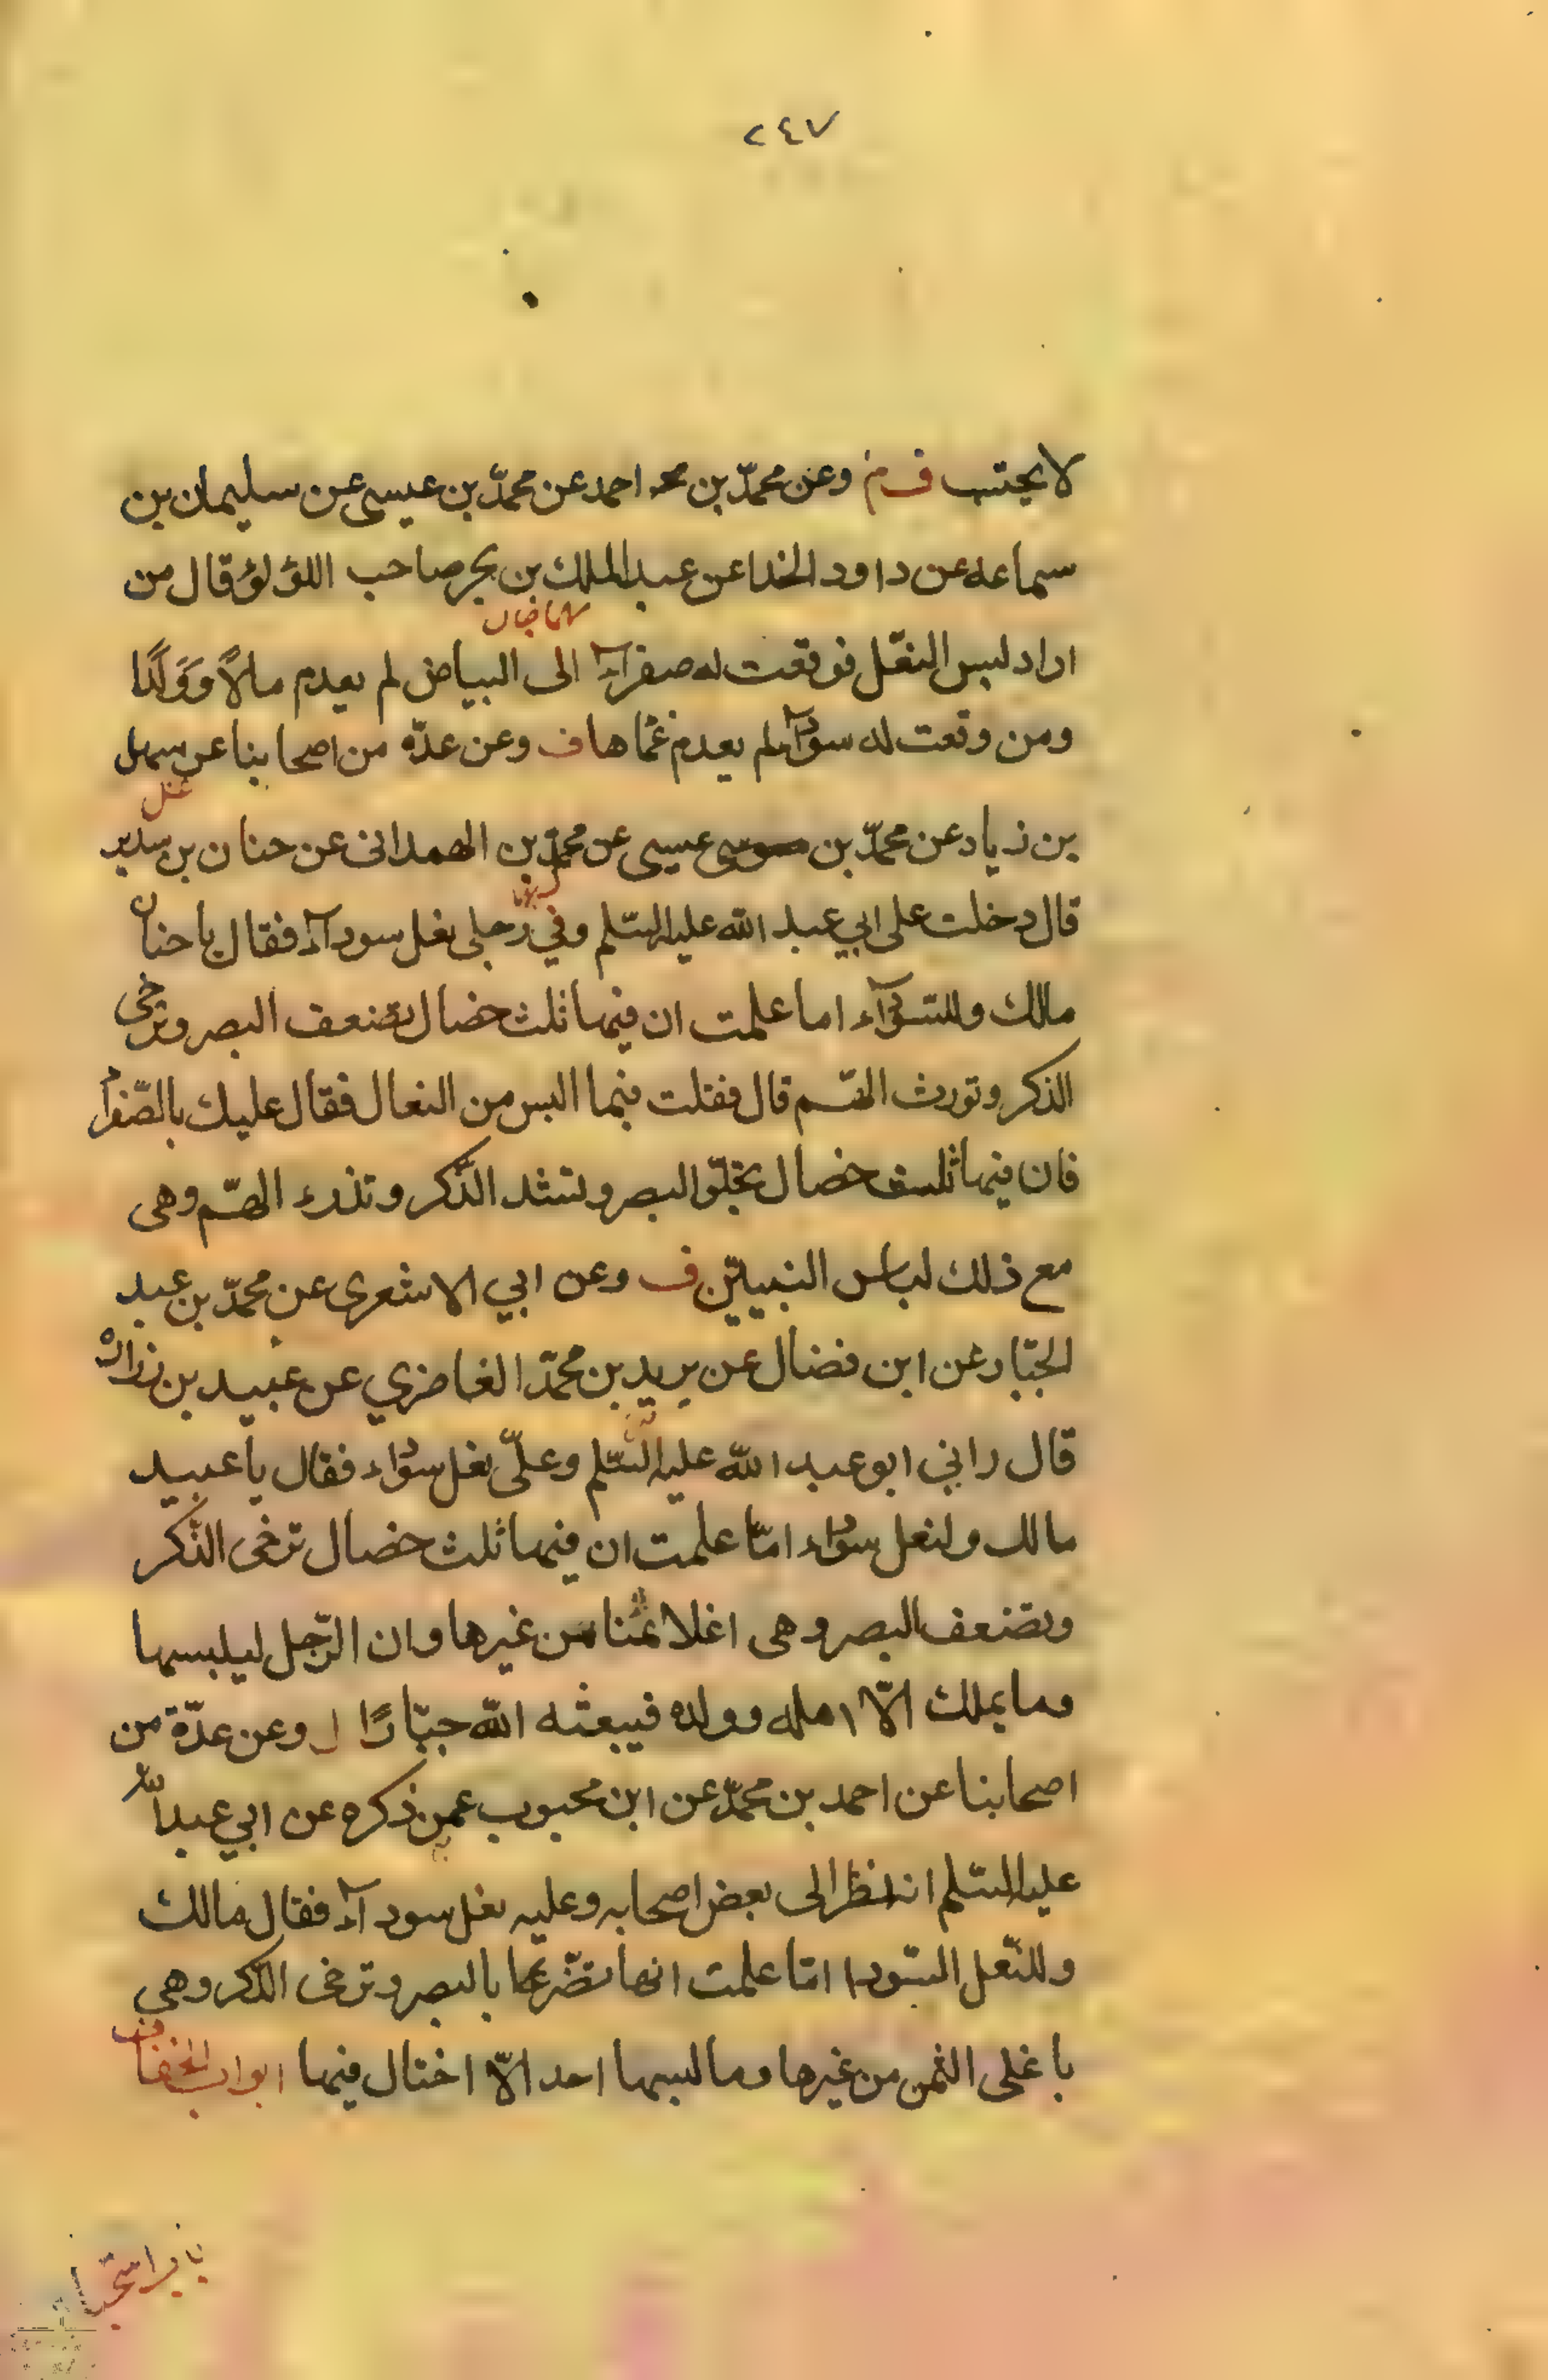 ٢٤٧
لا يحتسب ف م وعن محمّد بن احمد عن محمّد بن عيسى عن سليمان بن
سماعه عن داود الخذا عن عبد الملك بن بحر صاحب اللؤلؤ قال من
اراد لبس النعّل فوقعت له صفرآء الى البياض لم يعدم مالاً وَوَلَدًا
ومن وقعت له سودآء لم يعدم غمّا هاف وعن عدّه من اصحابنا عن سهل
بن زياد عن محمّد بن عيسى عن محمّد بن الهمدانى عن حنان بن سدير
قال دخلت على ابي عبد الله عليه السّلم وفي رجلى نعل سودآء فقال يا حنان
مالك وللسّودآء اما علمت ان فيها ثلث خصال تضعف البصر وترخى
الذكر وتورث الهّم قال فقلت فبما البس من النعال فقال عليك بالصّفرآء
فان فيها ثلث خصال تجلّو البصر وتشد الذّكر وتدرء الهّم وهى
مع ذلك لباس النبييّن ف وعن ابي الاشعرى عن محمّد بن عبد
الجبّار عن ابن فضال عن بريد بن محمّد الغاضري عن عبيد بن زرارة
قال راني ابو عبد الله عليه السّلم وعلىّ نعل سوداء فقال يا عبيد
مالك ولنعل سوداء امّا علمت ان فيها ثلث خصال ترخى الذّكر
وتضعف البصر وهى اغلا ثمنا من غيرها وان الرّجل ليلبسها
وما يملك الّا اهله وولده فيبعثه الله جبّارًا ل وعن عدّة من
اصحابنا عن احمد بن محمّد عن ابن محبوب عمن ذكره عن ابي عبد الله
عليه السّلم انه نظر الى بعض اصحابه وعليه نعل سودآء فقال مالك
وللنّعل السّودا امّا علمت انها تضّر بالبصر وترخى الذّكر وهى
باغلى الثمن من غيرها وما لبسها احد الّا اختال فيها ابواب الخفاف
باب استحبا